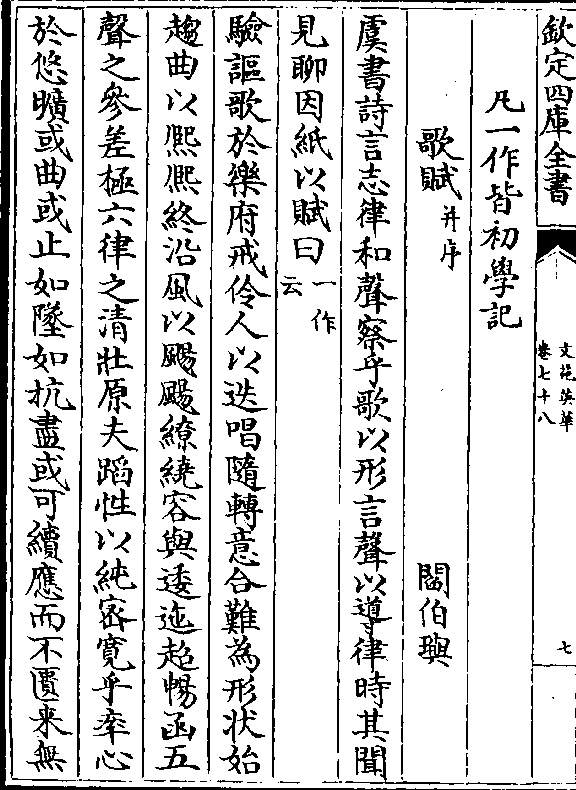 欽定四庫全書
文苑英華
卷七十八
七
凡一作皆初學記
歌賦并序
閻伯璵
虞書詩言志律和聲察乎歌以形言聲以導律時其聞
見聊因紙以賦曰一作云
驗謳歌於樂府戒伶人以迭唱隨轉意合難為形狀始
趨曲以熈熈終沿風以颺颺繚繞容與逶迤超暢函五
聲之參差極六律之清壯原夫蹈性以純宻寛乎率心
於悠曠或曲或止如墜如抗盡或可續應而不匱来無